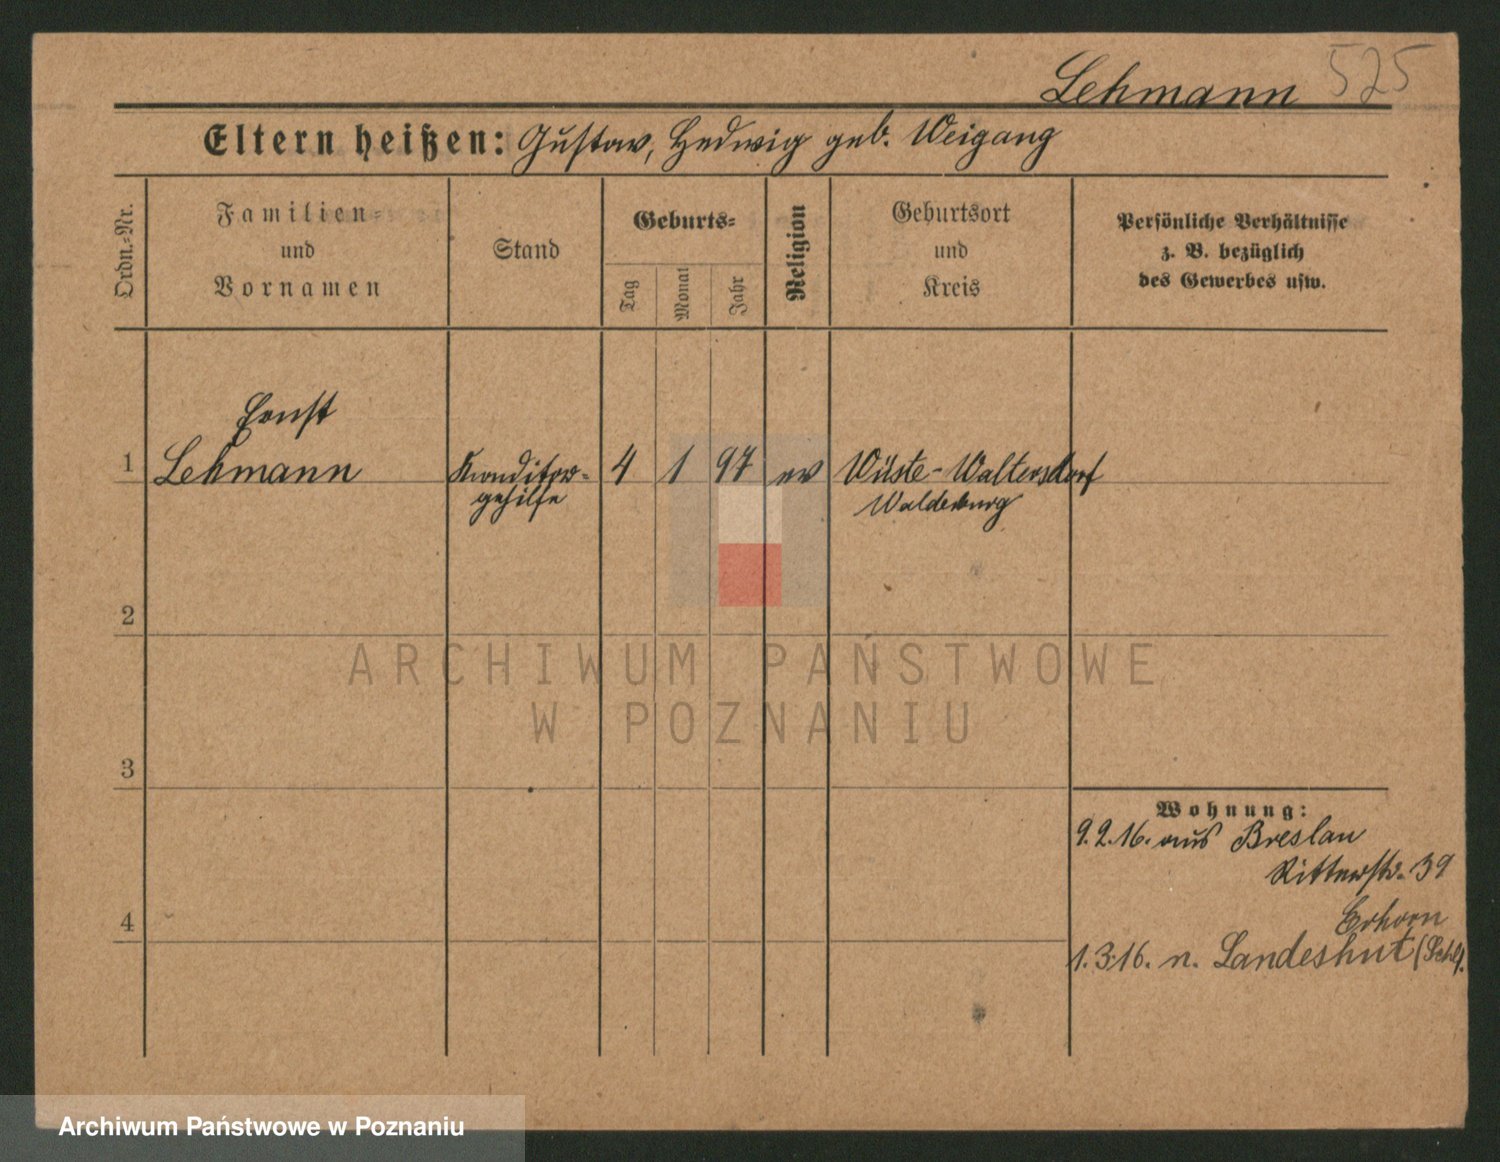 Lehmann 525
Eltern heißen: Gustav, Hedwig geb. Weigang
Ordn.=Nr.
Familien=
und
Vornamen
Stand
Geburts=
Tag
Monat
Jahr
Religion
Geburtsort
und
Kreis
Persönliche Verhältnisse
z. B. bezüglich
des Gewerbes usw.
Ernst
1 Lehmann Konditor- 4 1 97 ev Wüste-Waltersdorf
gehilfe Waldenburg
2
ARCHIWUM PAŃSTWOWE
W POZNANIU
3
Wohnung:
9.2.16. aus Breslau
Ritterstr. 39
4
1.3.16. n. Landeshut (Schl).
Archiwum Państwowe w Poznaniu